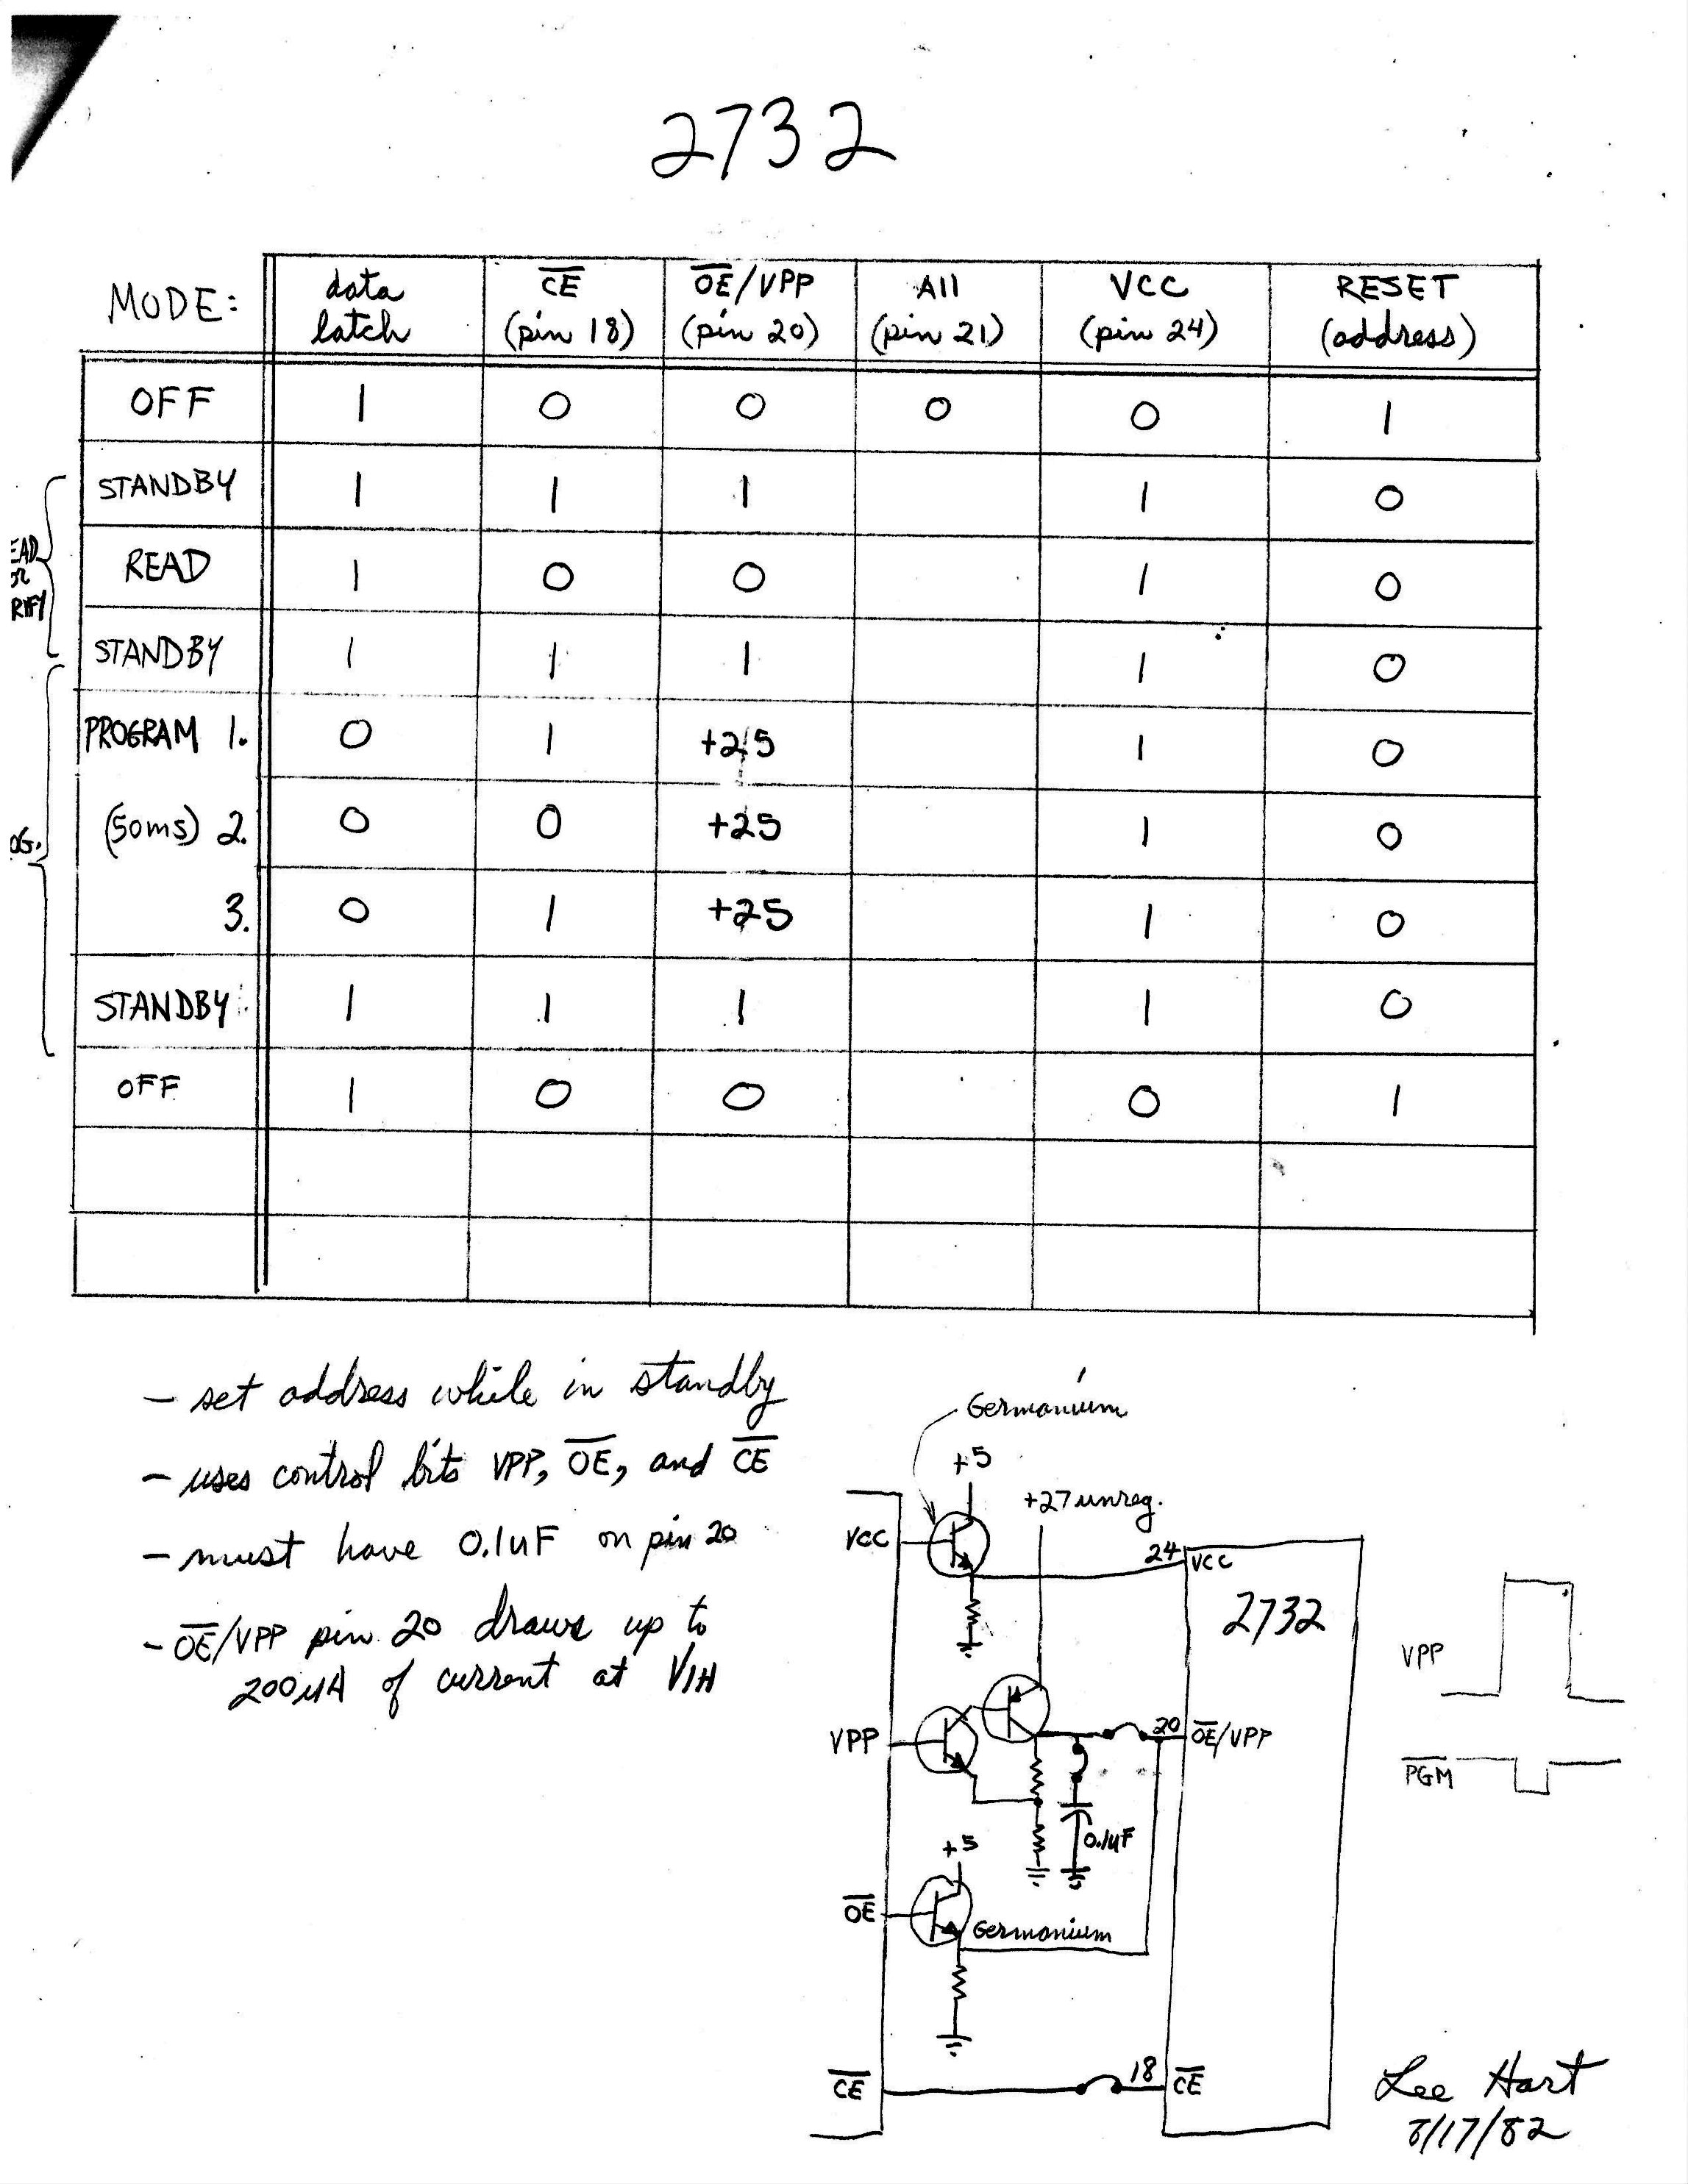 2732
MODE: data latch C̅E̅ (pin 18) O̅E̅/VPP (pin 20) A11 (pin 21) VCC (pin 24) RESET (address)
OFF 1 0 0 0 0 1
STANDBY 1 1 1 1 0
READ 1 0 0 1 0
STANDBY 1 1 1 1 0
PROGRAM 1. 0 1 +25 1 0
(50ms) 2. 0 0 +25 1 0
3. 0 1 +25 1 0
STANDBY 1 1 1 1 0
OFF 1 0 0 0 1
EAD
OR
RIFY
OG.
- set address while in standby
- uses control bits VPP, O̅E̅, and C̅E̅
- must have 0.1uF on pin 20
- O̅E̅/VPP pin 20 draws up to
200uA of current at VIH
Germanium
+5
+27 unreg.
VCC
24
VCC
2732
VPP
20
O̅E̅/VPP
0.1uF
+5
O̅E̅
Germanium
C̅E̅
18
C̅E̅
VPP
P̅G̅M̅
Lee Hart
8/17/82